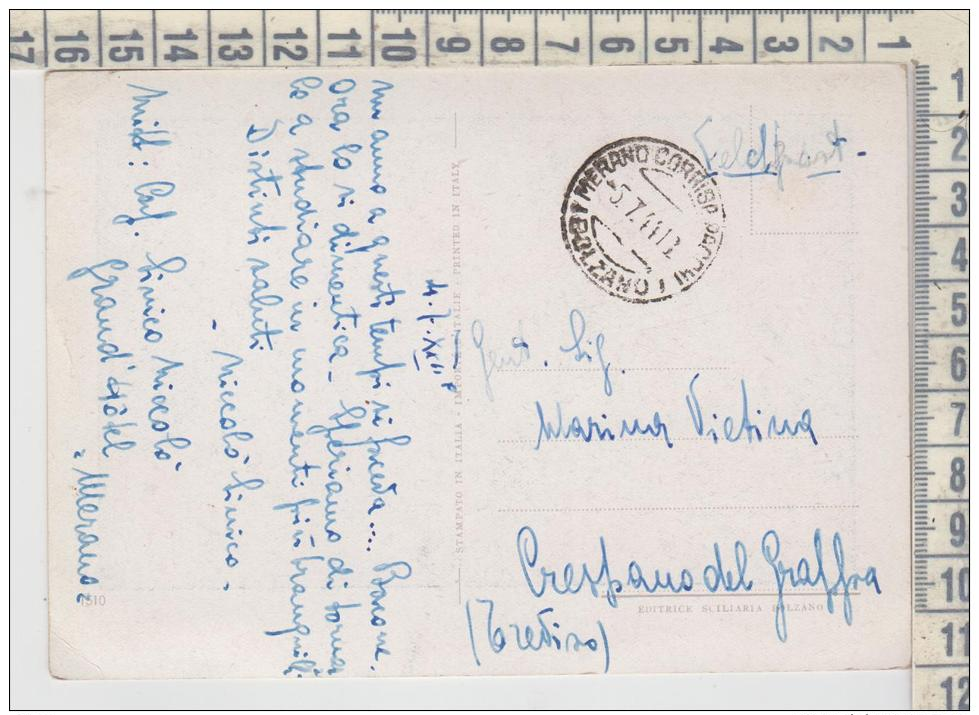 17 16 15 14 13 12 11 10 9 8 7 6 5 4 3 2 1
1
2
3
4
5
6
7
8
9
10
11
12
Feldpost.
MERANO CORRISP PACCHI
5.7.41
BOLZANO
4-7-XIX
mi anno a questi tempi si faceva.... Bassone.
Ora lo si dimentica - Speriamo di torna
lo a studiare in momenti più tranquilli
Distinti saluti
- Niccolò Sinico -
Mitt: Cap. Sinico Niccolò
Grand' Hôtel
"Merano"
1510
STAMPATO IN ITALIA - IMPRIMÉ EN ITALIE - PRINTED IN ITALY
Gent. Sig.
Marina Vietina
Crespano del Grappa
(Treviso)
EDITRICE SCILIARIA BOLZANO